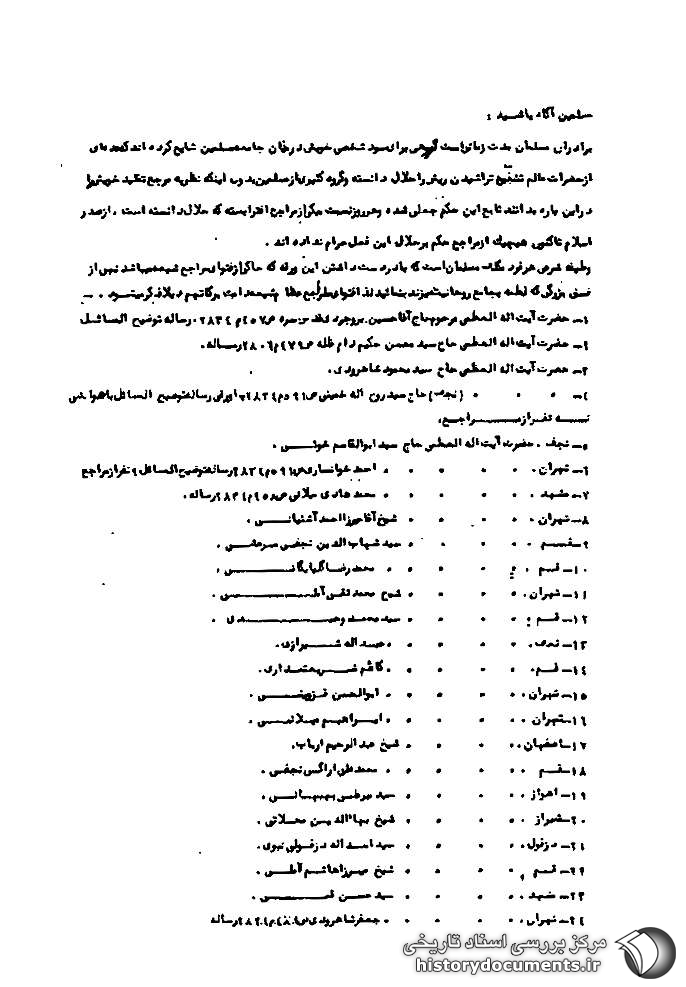 مسلمین آگاه باشید :
برادران مسلمان مدت زمانی است گروهی برای سود شخصی خویش در میان جامعه مسلمین شایع کرده اند که عده ای
از حضرات عالم تشیع تراشیدن ریش را حلال دانسته وگروه کثیری از مسلمین بدون اینکه نظریه مرجع تقلید خویش را
در این باره بدانند تابع این حکم جعلی شده و هر روز نسبت مکرر بمراجع افترا بسته که حلال دانسته است . از صدر
اسلام تاکنون هیچیک از مراجع حکم بر حلال این فعل حرام نداده اند .
وظیفه شرعی هر فرد مسلمان است که با در دست داشتن این ورقه که حاکی از فتوای مراجع شیعه میباشد نهی از
فسق بزرگی که لطمه بجامع روحانیت میزند بنمائید لذا فتوای مراجع عظام شیعه دامت برکاتهم ذیلا ذکر میشود . –
١– حضرت آیت اله العظمی مرحوم حاج آقا حسین بروجردی قدس سره ص ٥٧ م ٢٨٣٤ . رساله توضیح المسائل
٢– حضرت آیت اله العظمی حاج سید محسن حکیم دام ظله ص ٤٧٩ م ٢٨٠٦ رساله.
٣– حضرت آیت اله العظمی حاج سید محمود شاهرودی.
٤– " " " (نجف) حاج سید روح اله خمینی ص ٥٩١ م ٢٨٣٤ رساله توضیح المسائل با حواشی
نه نفر از مراجع.
٥– نجف . حضرت آیت اله العظمی حاج سید ابوالقاسم خوئی .
٦– تهران . " " " " احمد خوانساری ص ٥٩١ م ٢٨٣٤ رساله توضیح المسائل ٩ نفر از مراجع
٧– مشهد . " " " " محمد هادی میلانی رساله .
٨– تهران . " " " شیخ آقا میرزا احمد آشتیانی .
٩– قم " " " سید شهاب الدین نجفی مرعشی .
١٠– قم . " " " " محمد رضا گلپایگانی .
١١– تهران . " " " شیخ محمد تقی آملی .
١٢– قم " " " سید محمد وحیدی .
١٣– " " " " عبد اله شیرازی .
١٤– قم . " " " " کاظم شریعتمداری .
١٥– تهران . " " " " ابوالحسن قزوینی .
١٦– تهران . " " " " ابراهیم میلانی .
١٧– اصفهان . " " " شیخ عبد الرحیم ارباب .
١٨– قم . " " " " محمد علی اراکی نجفی .
١٩– اهواز . " " " سید مرتضی بهبهانی .
٢٠– شیراز . " " " شیخ بهاءاله ین محلاتی .
٢١– دزفول . " " " سید اسد اله دزفولی نبوی .
٢٢– قم . " " " شیخ میرزا هاشم آملی .
٢٣– مشهد . " " " سید حسن قمی .
٢٤– تهران . " " " " جعفر شاهرودی رساله
مرکز بررسی اسناد تاریخی
historydocuments.ir